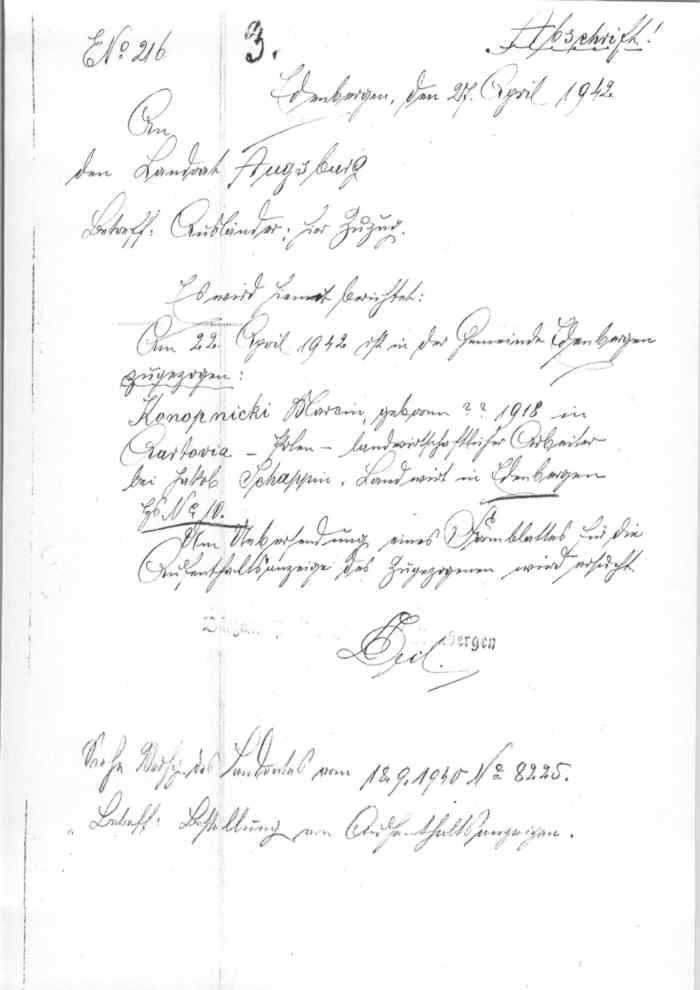 E No 216 3. Abschrift!
Edenbergen, den 27. April 1942.
An
den Landrat Augsburg
Betreff: Ausländer; hier Zuzug.
Es wird hiemit berichtet:
Am 22. April 1942 ist in der Gemeinde Edenbergen
zugezogen:
Konopnicki Marvin, geboren ? ? 1918 in
– Polen – landwirtschaftlicher Arbeiter
bei Jakob Schappin, Landwirt in Edenbergen
Hs No 10.
Um Uebersendung eines Stammblattes für die
Aufenthaltsanzeige des Zugezogenen wird ersucht.
bergen
Siehe Verfg. des Landrates vom 18.9.1940 No 8225.
Betreff: Bestellung von Aufenthaltsanzeigen.